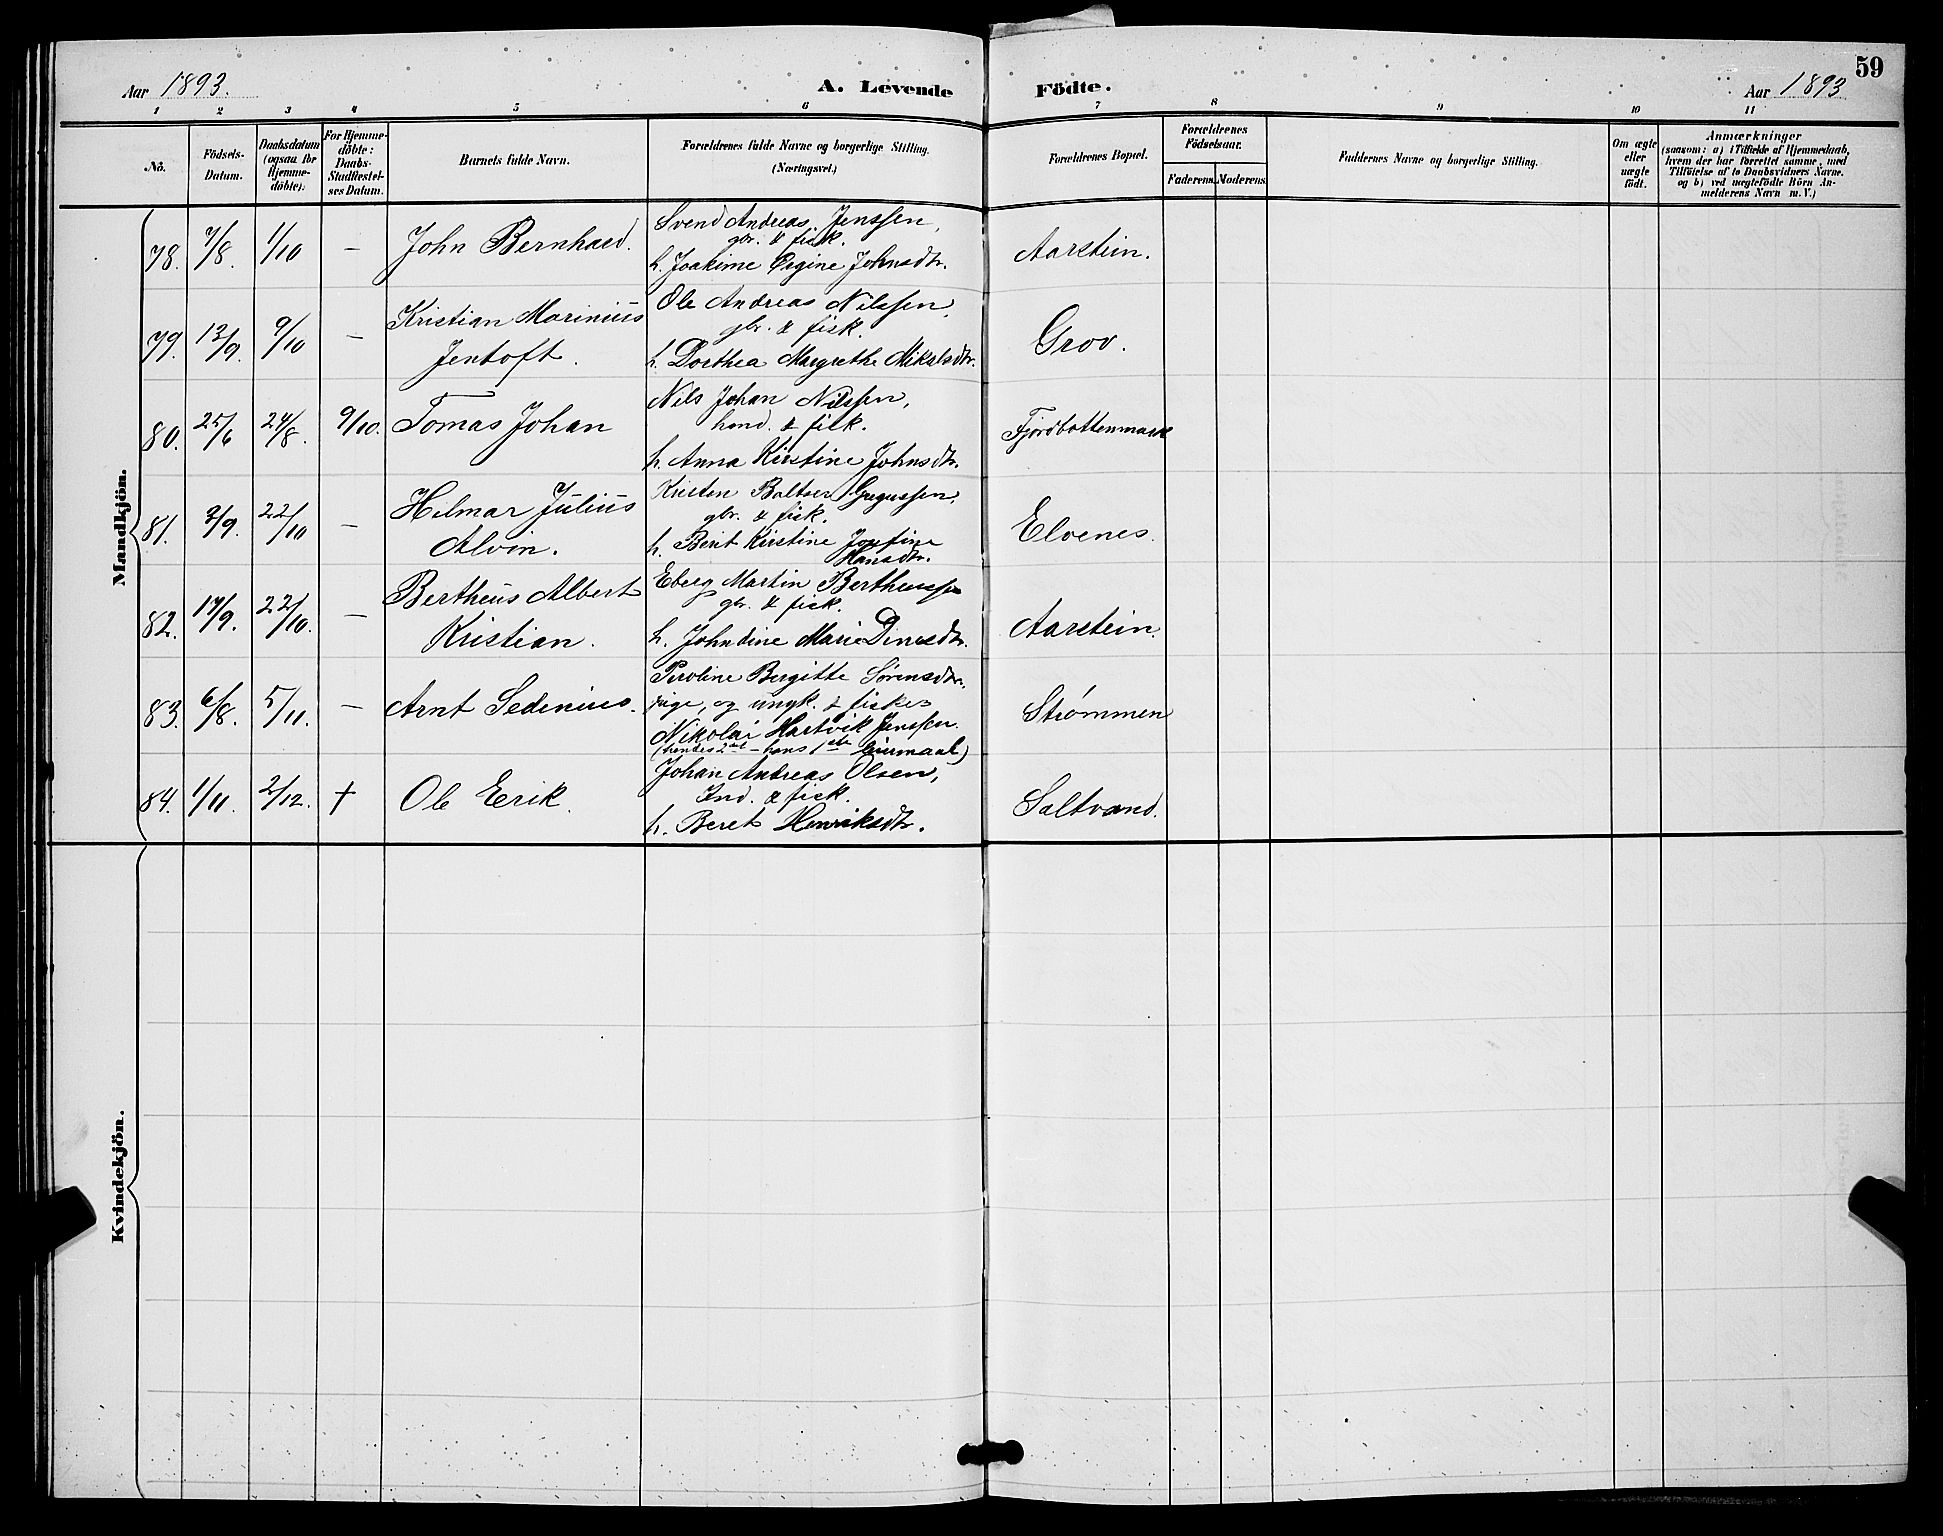 59
Aar 1893. A. Levende Födte. Aar 1893
1 2 3 4 5 6 7 8 9 10 11
No.
Födsels-
Datum.
Daabsdatum
(ogsaa for
Hjemme-
döbte).
For Hjemme-
döbte:
Daabs-
Stadfæstel-
ses Datum.
Barnets fulde Navn.
Forældrenes fulde Navne og borgerlige Stilling.
(Næringsvei.)
Forældrenes Bopæl.
Forældrenes
Födselsaar.
Faderens. Moderens.
Faddernes Navne og borgerlige Stilling.
Om ægte
eller
uægte
födt.
Anmærkninger
(saasom: a) i Tilfælde af Hjemmedaab,
hvem der har forrettet samme, med
Tilföielse af to Daabsvidners Navne.
og b) ved uægtefödte Börn An-
melderens Navn m. V.)
Mandkjön.
78. 7/8. 1/10 — John Bernhard.
Svend Andreas Jenssen,
gbr. & fisk.
h. Joakime Johnsdtr.
Aarstein.
79. 13/9. 9/10 — Kristian Marinius
Jentoft.
Ole Andreas Nilssen,
gbr. & fisk.
h. Dorthea Margrethe Mikalsdtr.
Grov.
80. 25/6 24/8. 9/10. Tomas Johan
Nils Johan Nilssen,
& fisk.
h. Anna Kirstine Johnsdtr.
Fjordbottenmark
81. 3/9. 22/10 — Hilmar Julius
Alvin.
Kristen Baltser
gbr. & fisk.
h. Berit Kirstine Josefine
Hansdtr.
Elvenes.
82. 17/9. 22/10. — Bertheus Albert
Kristian.
Eberg Martin Bertheussen
gbr. & fisk.
h. Johndine Marie Dinesdtr.
Aarstein.
83. 6/8. 5/11. — Arnt Sedenius.
Peroline Bergitte Sørensdtr.,
pige, og ungk. & fisker
Nikolai Hartvik Jenssen
(hendes 2det – hans 1ste leiermaal)
Strømmen
84. 1/11. 2/12. † Ole Eerik.
Johan Andreas Olsen,
Ind. & fisk.
h. Beret Henriksdtr.
Saltvand.
Kvindekjön.